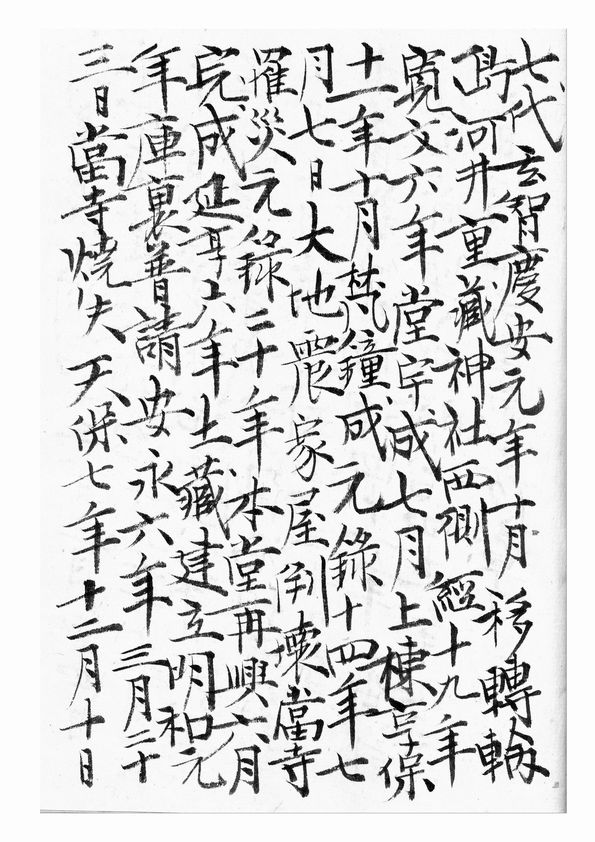 七代玄智慶安元年十月移轉輪
島河井重藏神社西側經十九年
寛文六年堂宇成七月上棟享保
十一年十月梵鐘成元錄十四年七
月七日大地震家屋倒壊當寺
罹災元錄二十年本堂再興六月
完成延享六年土藏建立明和元
年庫裏普請安永六年三月二十
三日當寺燒失天保七年十二月十日